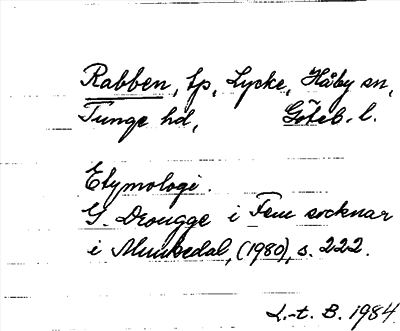 Rabben, lp, Lycke, Håby sn,
Tunge hd, Göteb. l.
Etymologi.
G. Drougge i Fem socknar
i Munkedal, (1980), s. 222.
L.-t. B. 1984.